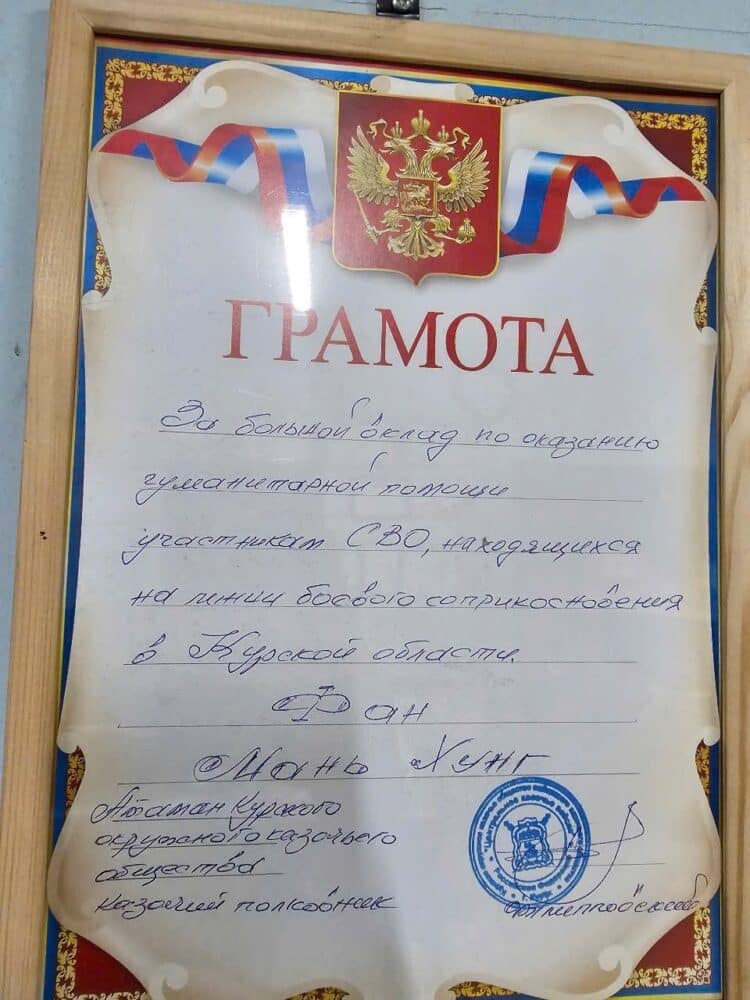 ГРАМОТА
За большой вклад по оказанию
гуманитарной помощи
участникам СВО, находящихся
на линии боевого соприкосновения
в Курской области.
Фан
Мань Хунг
Атаман Курского
окружного казачьего
общества
казачий полковник